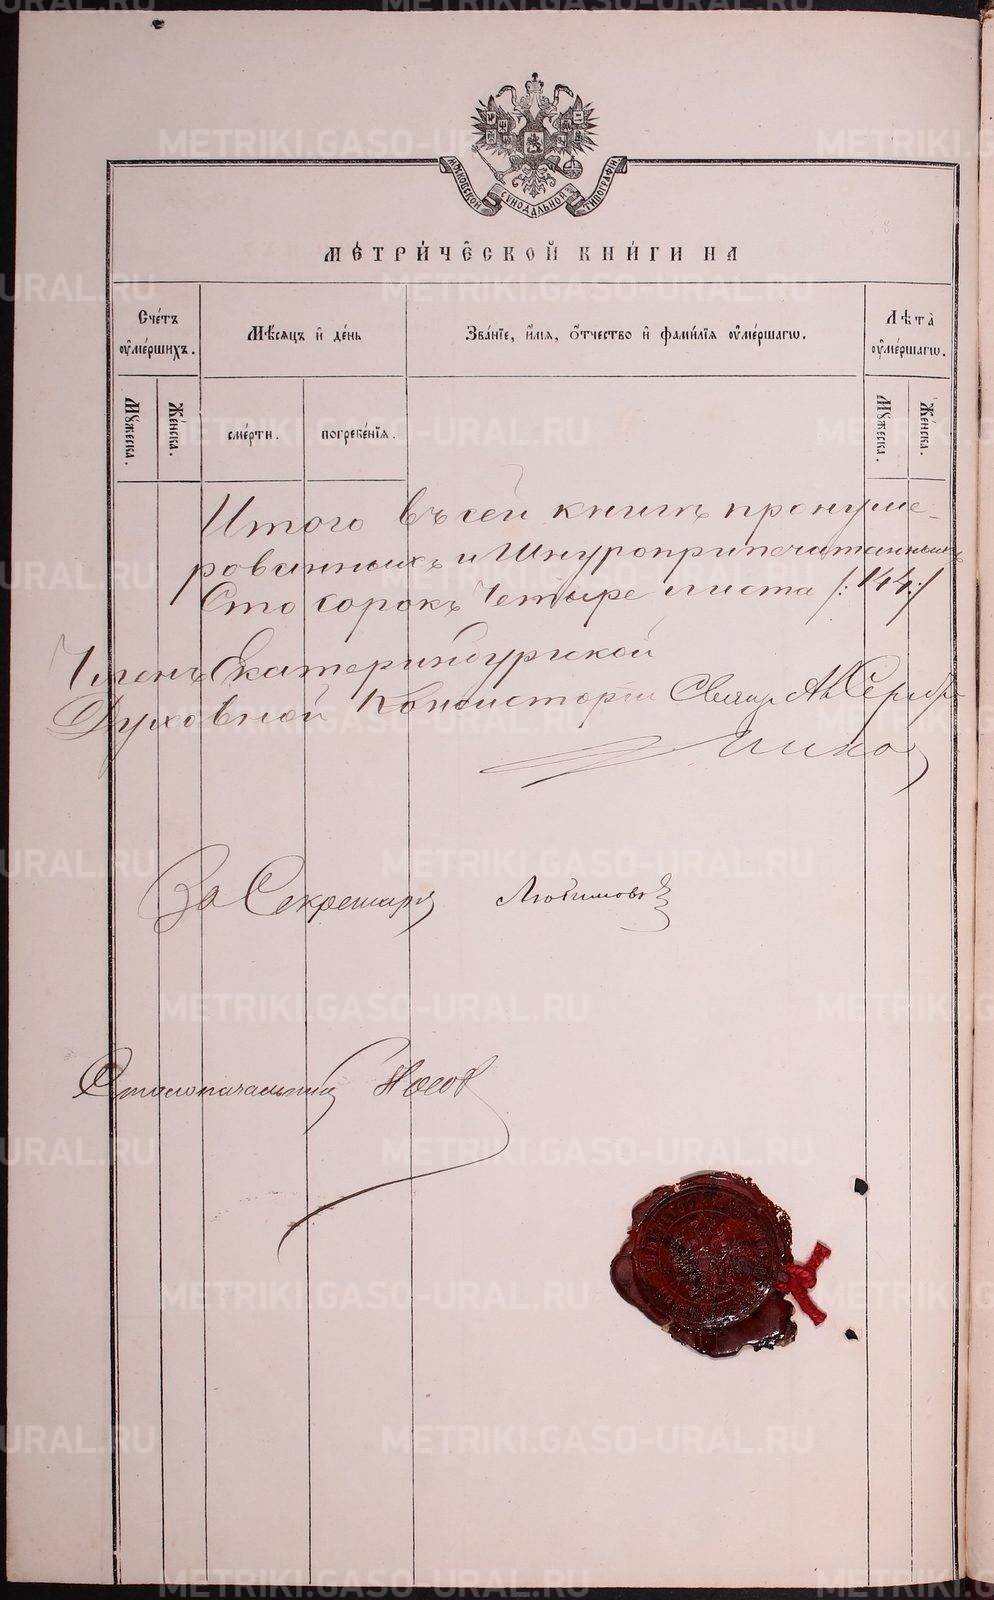 МОСКОВСКОЙ СѴНОДАЛЬНОЙ ТИПОГРАФІИ
МЕТРИ́ЧЕСКОЙ КНИ́ГИ НА
Сче́тъ оу҆ме́ршихъ.
Мѣ́сяцъ и҆ де́нь
Зва́нїе, и҆́мя, ѻ҆́тчество и҆ фами́лїя оу҆ме́ршагѡ.
Лѣта̀ оу҆ме́ршагѡ.
Мꙋ́жеска.
Же́нска.
сме́рти.
погребе́нїя.
Мꙋ́жеска.
Же́нска.
Итого въ сей книгѣ пронуме-
рованныхъ и шнуроприпечатанныхъ
Сто сорокъ четыре листа /:144:/
Членъ Екатеринбургской
Духовной Консисторіи Свящ.
За Секретаря Любимовъ
Столоначальникъ Носов
METRIKI.GASO-URAL.RU